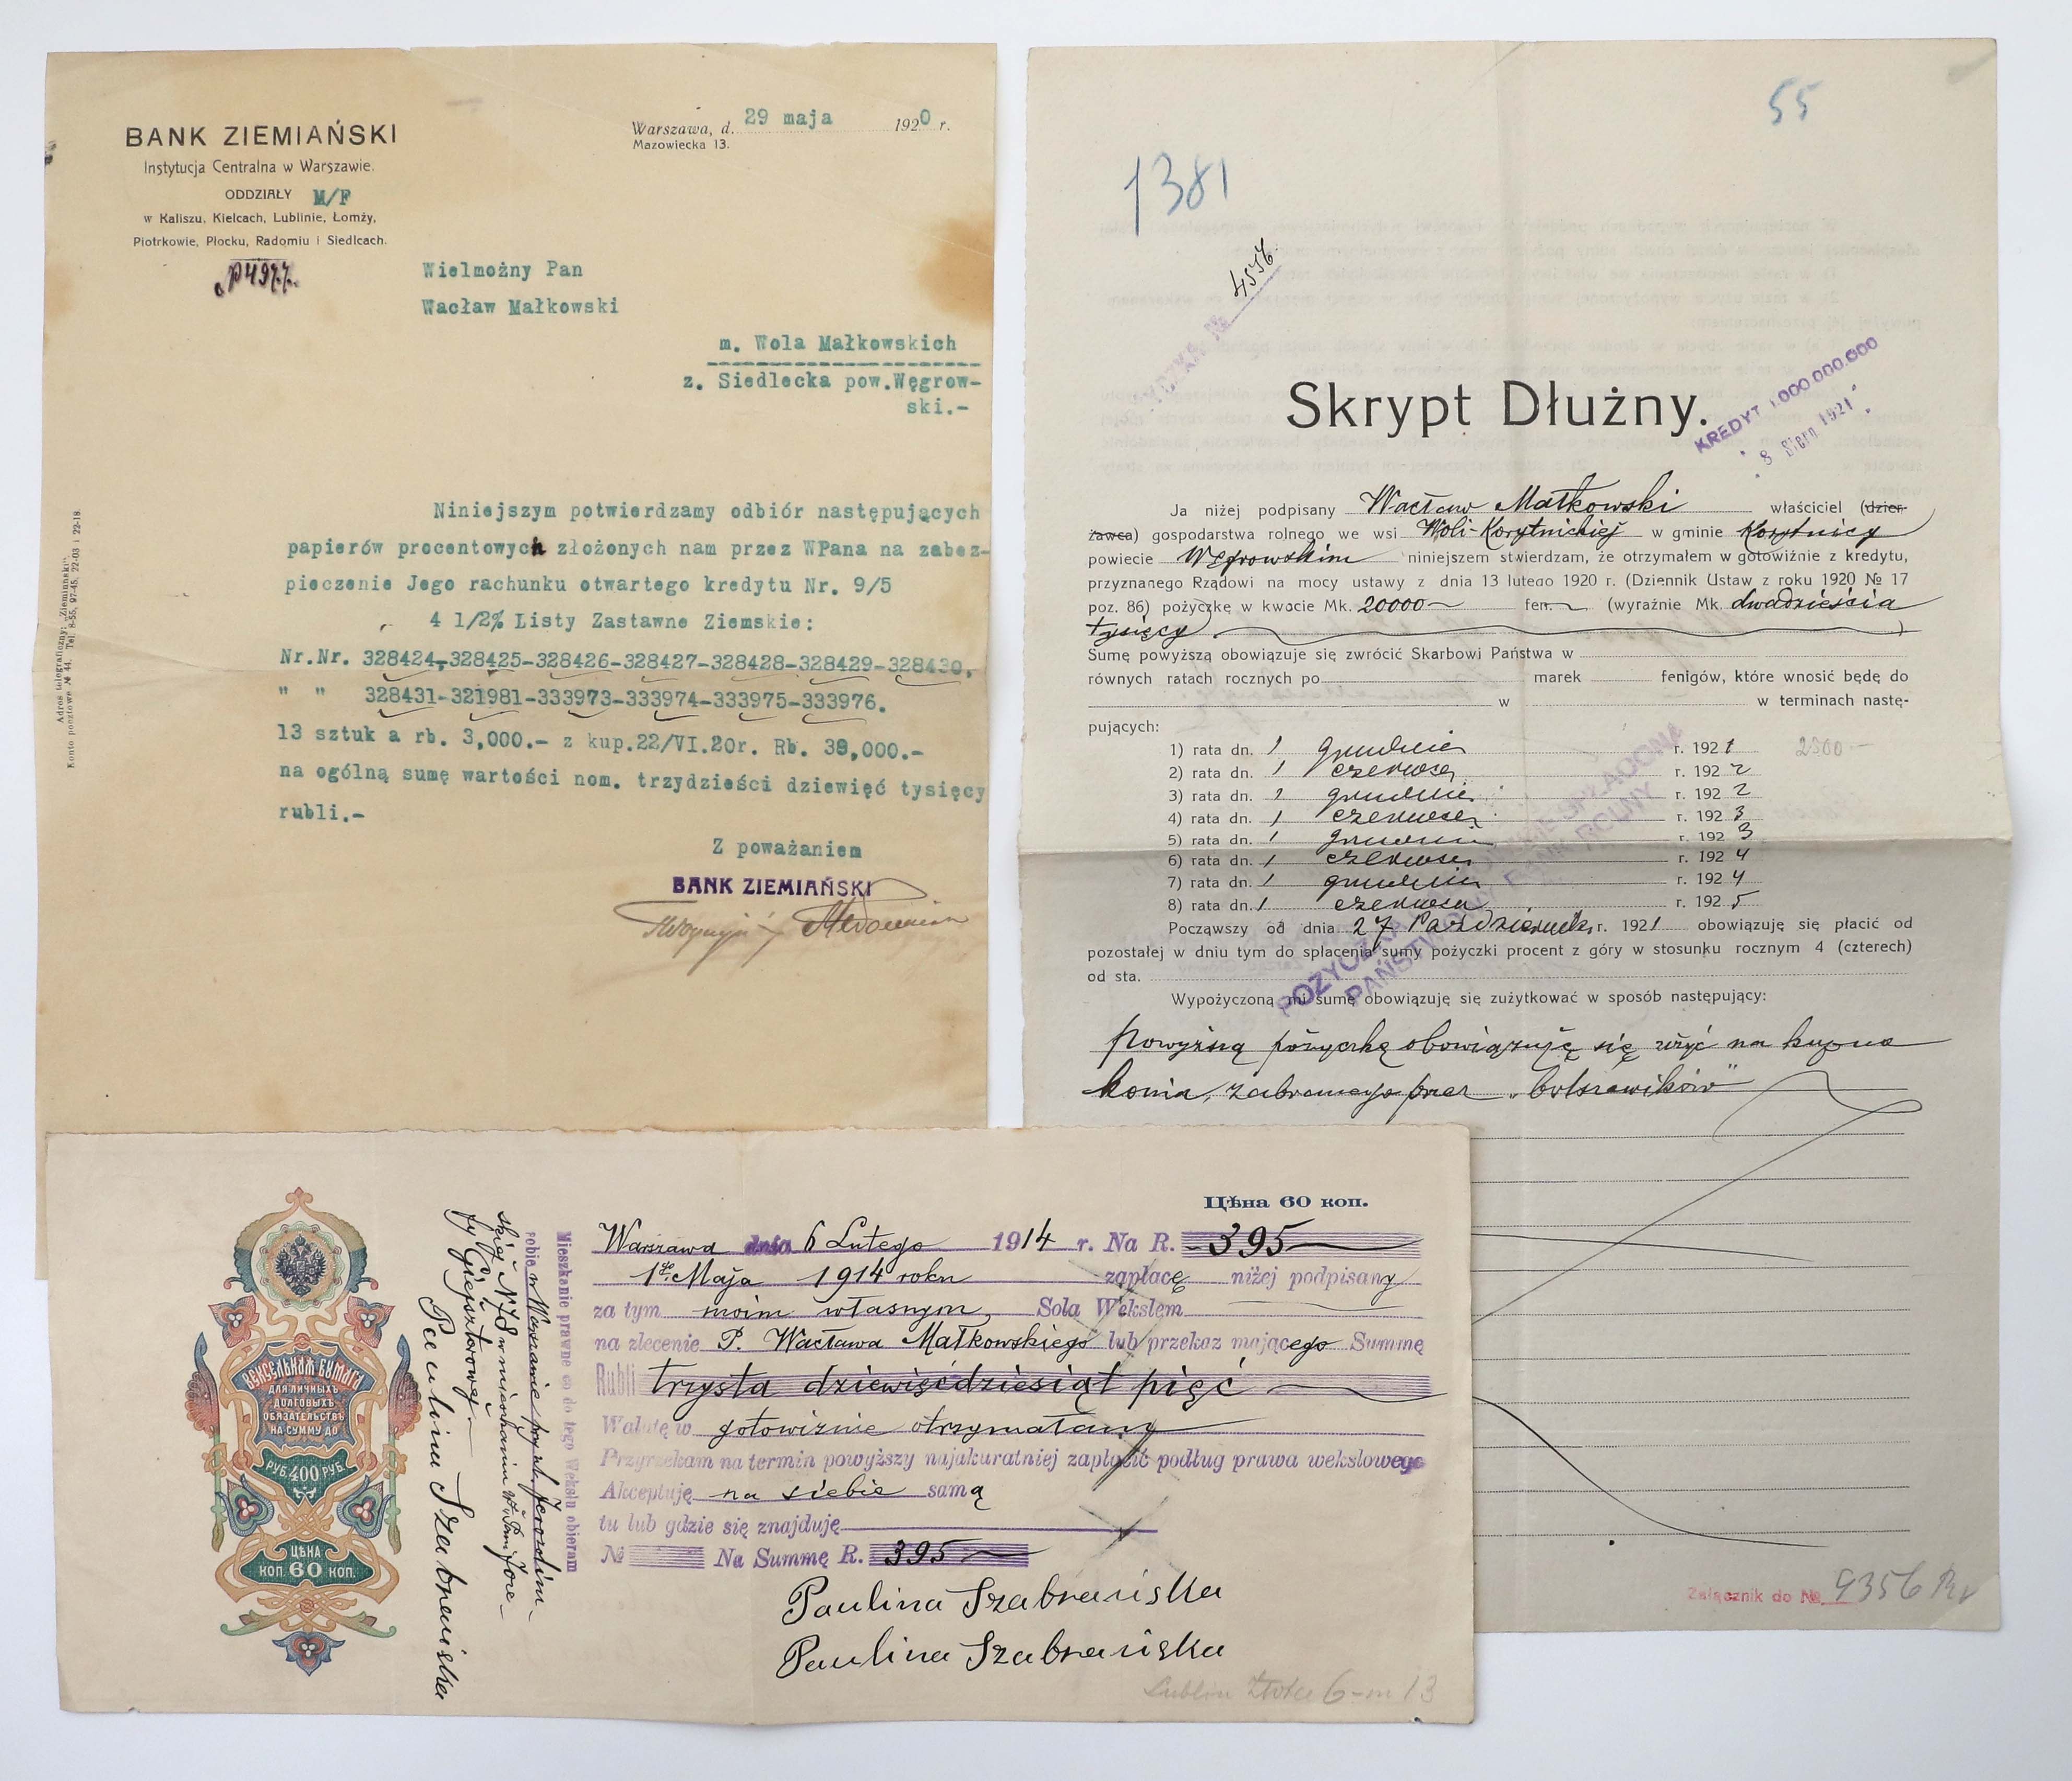 BANK ZIEMIAŃSKI
Instytucja Centralna w Warszawie.
ODDZIAŁY M/F
w Kaliszu, Kielcach, Lublinie, Łomży,
Piotrkowie, Płocku, Radomiu i Siedlcach.
Warszawa, d. 29 maja 1920 r.
Mazowiecka 13.
Wielmożny Pan
Wacław Małkowski
m. Wola Małkowskich
z. Siedlecka pow.Węgrow-
ski.-
Niniejszym potwierdzamy odbiór następujących
papierów procentowych złożonych nam przez WPana na zabez-
pieczenie Jego rachunku otwartego kredytu Nr. 9/5
4 1/2% Listy Zastawne Ziemskie:
Nr.Nr. 328424,-328425-328426-328427-328428-328429-328430,
" " 328431-321981-333973-333974-333975-333976.
13 sztuk a rb. 3,000.- z kup.22/VI.20r. Rb. 39,000.-
na ogólną sumę wartości nom. trzydzieści dziewięć tysięcy
rubli.-
Z poważaniem
BANK ZIEMIAŃSKI
Adres telegraficzny: „Ziemiański”.
Konto pocztowe № 44. Tel. 8-55, 97-45, 22-03 i 22-18.
55
1381
4576
Skrypt Dłużny.
KREDYT 1.000.000.000
8 Sierp 1921
Ja niżej podpisany Wacław Małkowski właściciel (dzier-
żawca) gospodarstwa rolnego we wsi Woli-Korytnickiej w gminie Korytnicy
powiecie Węgrowskim niniejszem stwierdzam, że otrzymałem w gotowiźnie z kredytu,
przyznanego Rządowi na mocy ustawy z dnia 13 lutego 1920 r. (Dziennik Ustaw z roku 1920 № 17
poz. 86) pożyczkę w kwocie Mk. 20000 fen. (wyraźnie Mk. dwadzieścia
tysięcy)
Sumę powyższą obowiązuje się zwrócić Skarbowi Państwa w
równych ratach rocznych po marek fenigów, które wnosić będę do
w w terminach nastę-
pujących:
1) rata dn. 1 grudnia r. 1921 2500
2) rata dn. 1 czerwca r. 1922
3) rata dn. 1 grudnia r. 1922
4) rata dn. 1 czerwca r. 1923
5) rata dn. 1 grudnia r. 1923
6) rata dn. 1 czerwca r. 1924
7) rata dn. 1 grudnia r. 1924
8) rata dn. 1 czerwca r. 1925
Począwszy od dnia 27 Października r. 1921 obowiązuję się płacić od
pozostałej w dniu tym do spłacenia sumy pożyczki procent z góry w stosunku rocznym 4 (czterech)
od sta.
Wypożyczoną mi sumę obowiązuję się zużytkować w sposób następujący:
powyższą pożyczkę obowiązuję się użyć na kupno
konia, zabranego przez „bolszewików”
Załącznik do № 9356
Цѣна 60 коп.
Warszawa dnia 6 Lutego 1914 r. Na R. 395
1go Maja 1914 roku zapłacę niżej podpisany
za tym moim własnym Sola Wekslem
na zlecenie P. Wacława Małkowskiego lub przekaz mającego Summę
Rubli trzysta dziewięćdziesiąt pięć
Walutę w gotowiźnie otrzymałam
Przyrzekam na termin powyższy najakuratniej zapłacić podług prawa wekslowego
Akceptuję na siebie samą
tu lub gdzie się znajduję
№ Na Summę R. 395
Paulina Szabrańska
Paulina Szabrańska
Lublin 6-m 13
Mieszkanie prawne co do tego Wekslu obieram
sobie w Warszawie przy ul. Jerozolim-
skiej N 78 w mieszkaniu
Paulina Szabrańska
ВЕКСЕЛЬНАЯ БУМАГА
ДЛЯ ЛИЧНЫХЪ
ДОЛГОВЫХЪ
ОБЯЗАТЕЛЬСТВЪ
НА СУММУ ДО
РУБ. 400 РУБ.
ЦѢНА
КОП. 60 КОП.